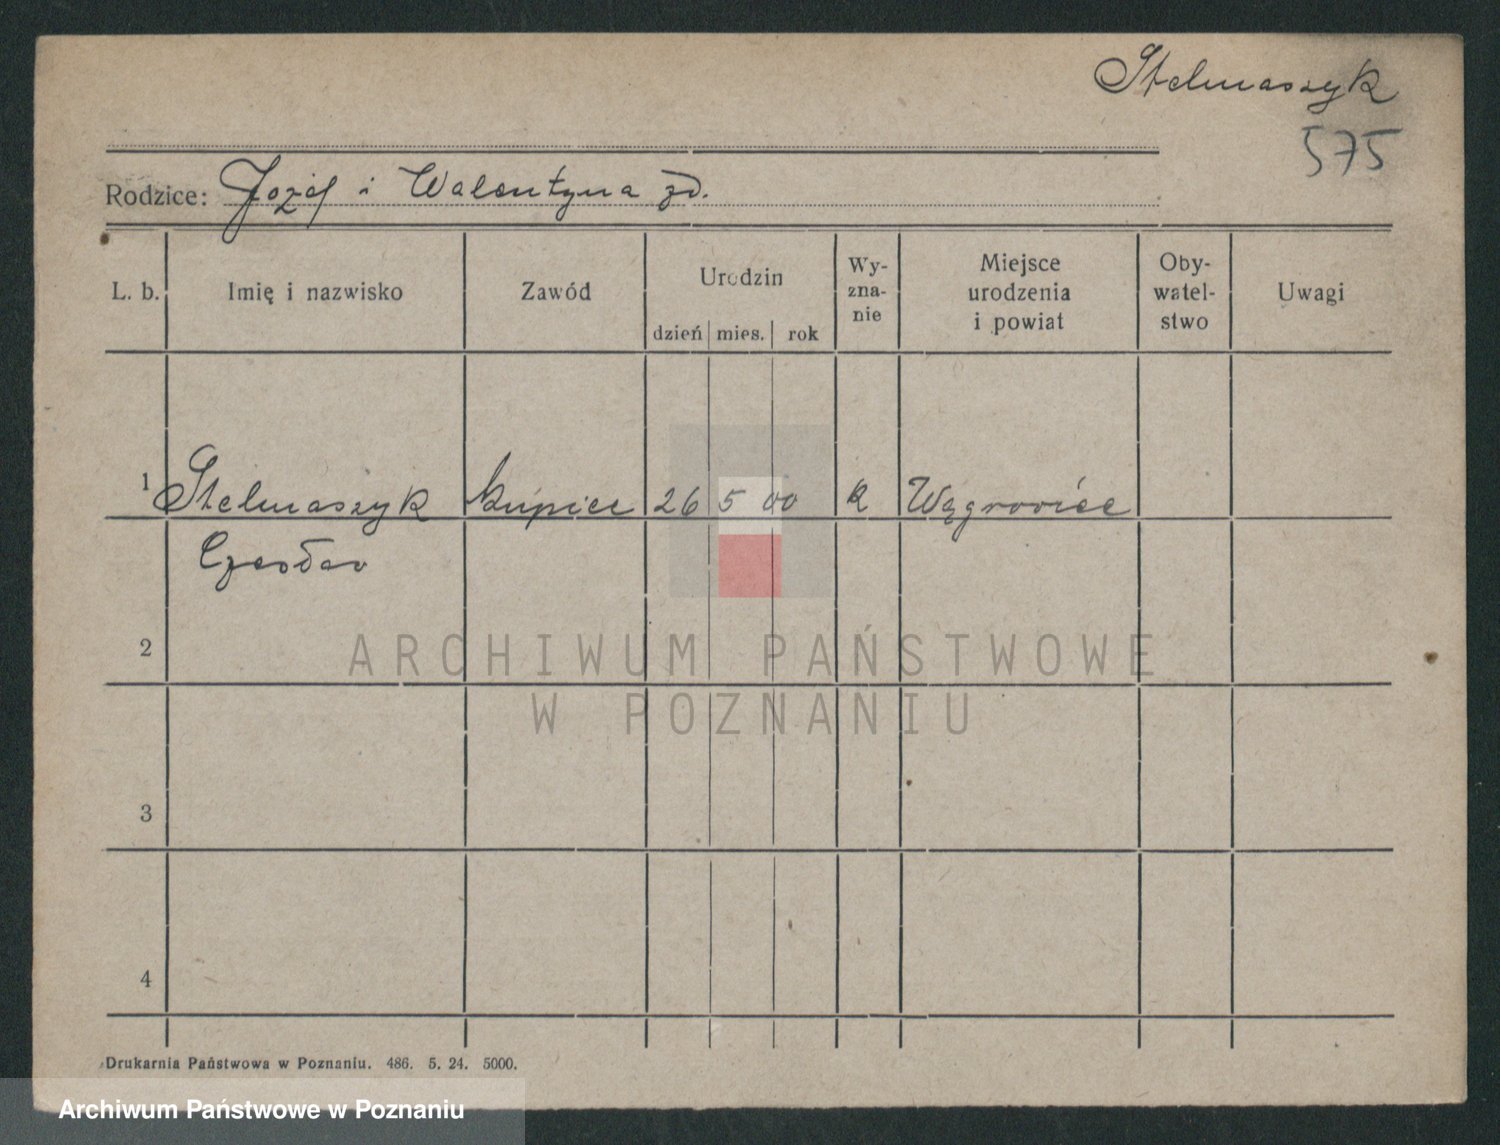 Stelmaszyk
575
Rodzice: Józef i Walentyna zd.
L. b. Imię i nazwisko Zawód Urodzin dzień mies. rok Wy-zna-nie Miejsce urodzenia i powiat Oby-watel-stwo Uwagi
1 Stelmaszyk kupiec 26 5 00 k Wągrowiec
Czesław
2
ARCHIWUM PAŃSTWOWE
W POZNANIU
3
4
Drukarnia Państwowa w Poznaniu. 486. 5. 24. 5000.
Archiwum Państwowe w Poznaniu